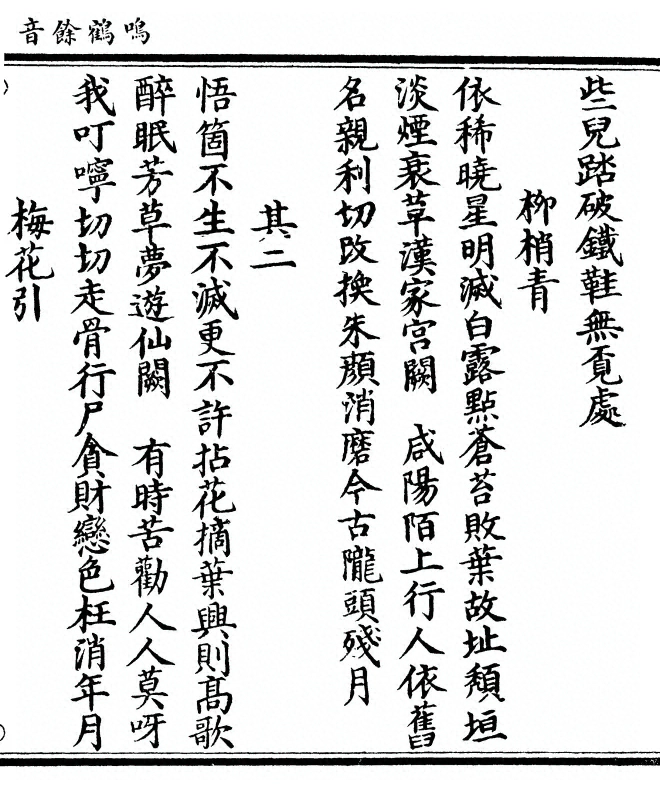 鳴鶴餘音
些兒踏破鐵鞋無覔處
柳梢青
依稀曉星明滅白露點蒼苔敗葉故址頽垣
淡煙衰草漢家宫闕　咸陽陌上行人依舊
名親利切改換朱顔消磨今古隴頭殘月
其二
悟箇不生不滅更不許拈花摘葉興則高歌
醉眠芳草夢遊仙闕　有時苦勸人人莫呀
我叮嚀切切走骨行尸貪財戀色枉消年月
梅花引